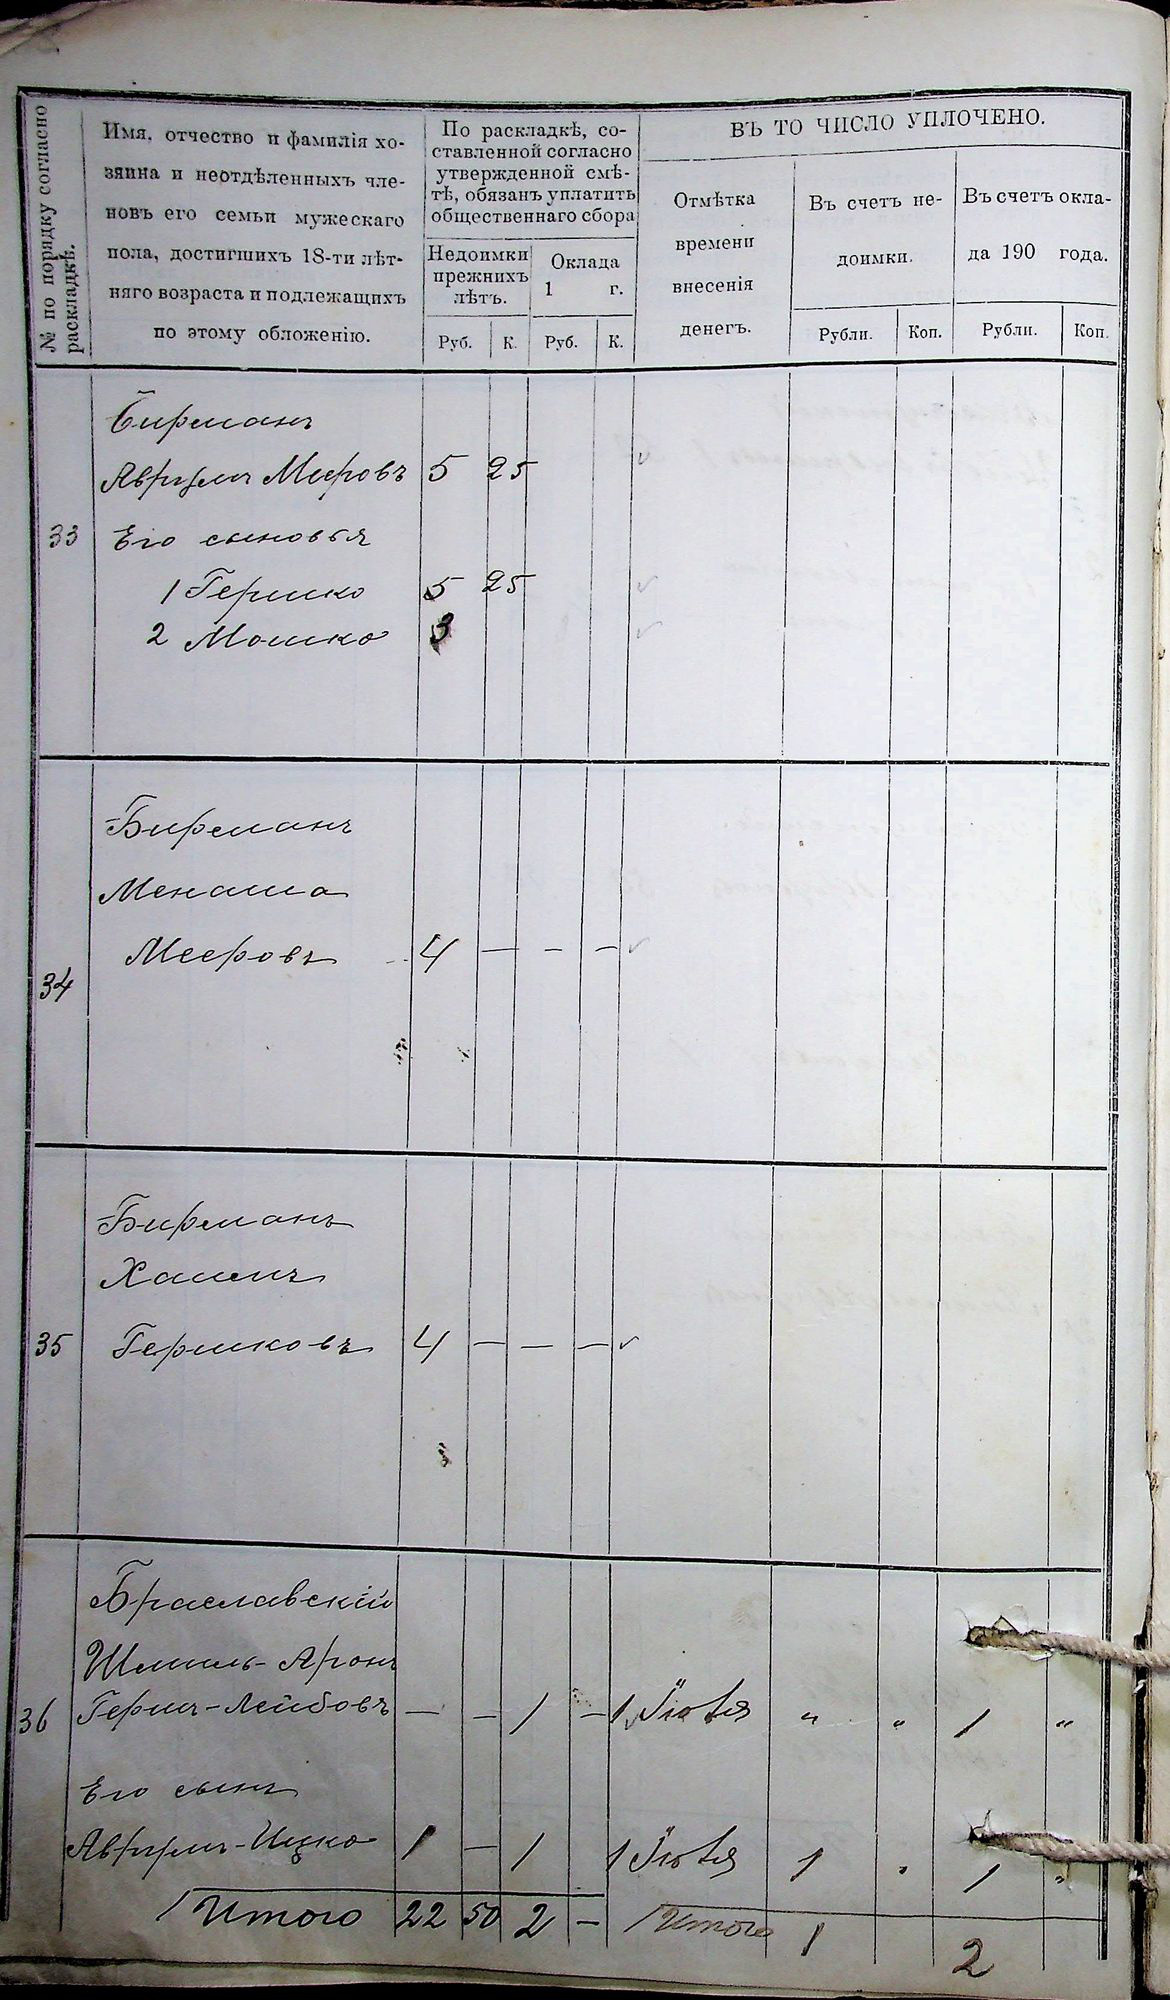 № по порядку согласно
раскладкѣ.
Имя. отчество и фамилія хо-
зяина и неотдѣленныхъ чле-
новъ его семьи мужескаго
пола, достигшихъ 18-ти лѣт-
няго возраста и подлежащихъ
по этому обложенію.
По раскладкѣ, со-
ставленной согласно
утвержденной смѣ-
тѣ, обязанъ уплатить
общественнаго сбора
Недоимки
прежнихъ
лѣтъ.
Оклада
1 г.
Руб. К. Руб. К.
ВЪ ТО ЧИСЛО УПЛОЧЕНО.
Отмѣтка
времени
внесенія
денегъ.
Въ счетъ не-
доимки.
Въ счетъ окла-
да 190 года.
Рубли. Коп. Рубли. Коп.
Бирманъ
Аврумъ Меировъ 5 25 ✓
33 Его сыновья
1 Гершко 5 25 ✓
2 Мошко 3 ✓
Бирманъ
Менаша
Мееровъ 4 — — — ✓
34
Бирманъ
Хаимъ
35 Гершковъ 4 — — — ✓
Браславскій
Шмиль-Аронъ
36 Герш-Лейбовъ — — 1 — 1 Іюля " " 1 "
Его сынъ
Аврумъ-Ицко 1 — 1 1 Іюля 1 " 1 "
Итого 22 50 2 — Итого 1 2